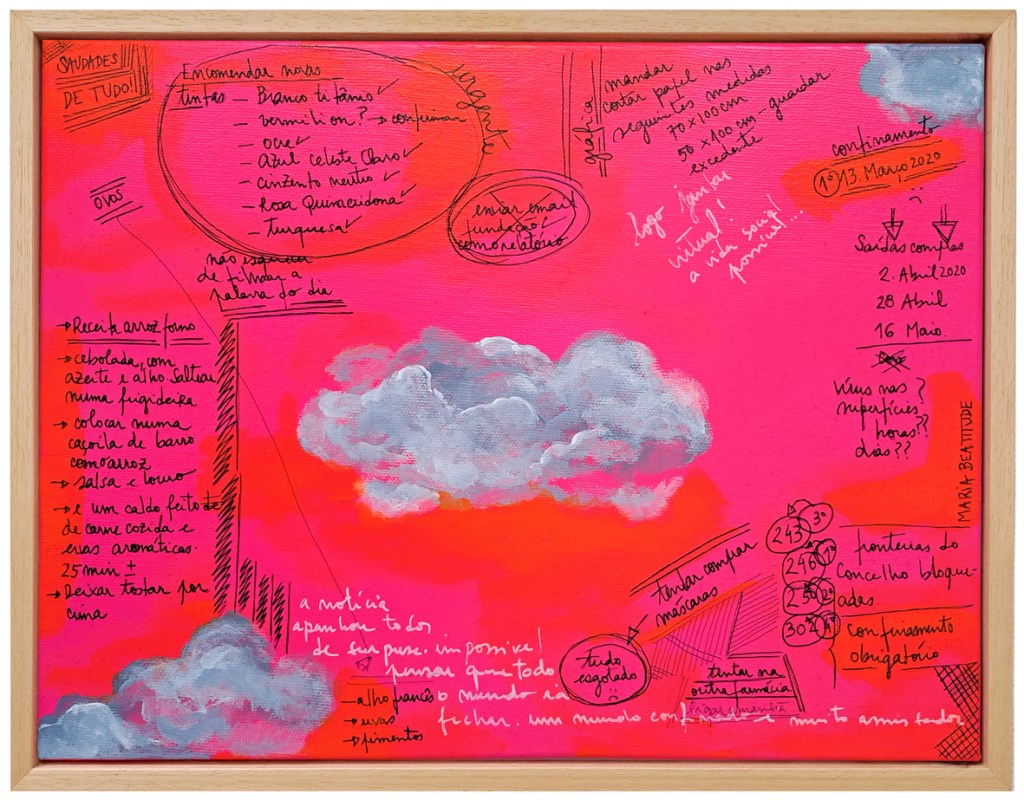 SAUDADES
DE TUDO!
Encomendar novas
tintas – Branco titânio
– vermilion? → confirmar
– ocre
– Azul celeste claro
– cinzento neutro
– Rosa Quinacridona
– turquesa
urgente
gráfica
mandar
cortar papel nas
seguintes medidas
70 x 100 cm
50 x 100 cm – guardar
excedente
confinamento
1º 13. Março 2020
ovos
enviar email
fundação
como relatório
logo jantar
virtual!
a vida social
possível...
Saídas compras
2. Abril 2020
28 Abril
16 Maio.
vírus nas ?
superfícies
horas??
dias??
MARIA BEATITUDE
não esquecer
de filmar a
palavra do dia
→ Receita arroz forno
→ cebolada, com
azeite e alho. Saltear
numa frigideira
→ colocar numa
caçoila de barro
com o arroz
→ salsa e louro
→ e um caldo feito de
de carne cozida e
ervas aromáticas.
25 min ±
→ Deixar tostar por
cima
243 3º
246 1º
2º
302 4º
fronteiras do
Concelho bloque-
adas.
confinamento
obrigatório
tentar comprar
máscaras
tudo
esgotado
tentar na
outra farmácia
ligar amanhã
a notícia
apanhou todos
de surpresa. impossível
pensar que todo
o mundo ia
fechar. um mundo confinado é muito assustador
– alho francês
→ uvas
→ pimentos